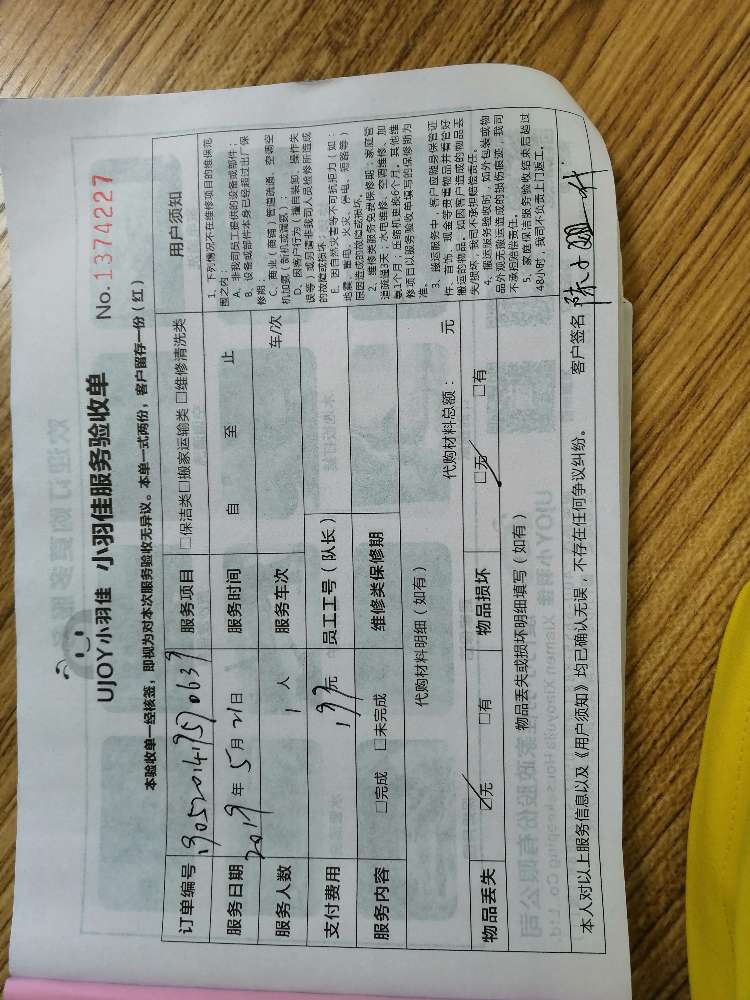 UJOY小羽佳 小羽佳服务验收单 No.1374227
本验收单一经核签，即视为对本次服务验收无异议。本单一式两份，客户留存一份（红）
订单编号 服务项目 □保洁类□搬家运输类 □维修清洗类
服务日期 2019年5月21日 服务时间 自 至 止
服务人数 1 人 服务车次 车/次
支付费用 元 员工工号（队长）
服务内容 □完成 □未完成 维修类保修期
代购材料明细（如有） 代购材料总额： 元
物品丢失 □无 □有 物品损坏 □无 □有
物品丢失或损坏明细填写（如有）
用户须知
1、下列情况不在维修项目的维保范
围之内：
A、非我司员工提供的设备或部件；
B、设备或部件本身已经超过出厂保
修期；
C、商业（商铺）管道疏通、空调空
机加氨（新机或漏氨）；
D、因客户行为（擅自装卸、操作失
误等）或另请非我司人员检修所造成
的故障或损坏
E、因自然灾害等不可抗拒力（如：
地震、雷电、火灾、停电、短路等）
原因造成的故障或损坏。
2、维修类服务免费保修期：家庭管
道疏通3天；水电维修、空调维修、加
氨1个月；压缩机更换6个月。其他维
修项目以服务验收单填写的保修期为
准。
3、搬运服务中，客户应随身保管证
件、首饰、现金等贵重物品并看管好
搬运的物品，如因客户造成的物品丢
失/损坏，我司不承担赔偿责任。
4、搬运服务验收时，如外包装或物
品外观无搬运造成的损伤痕迹，我司
不承担赔偿责任。
5、家庭保洁服务验收结束后超过
48小时，我司不负责上门返工。
本人对以上服务信息以及《用户须知》均已确认无误，不存在任何争议纠纷。 客户签名